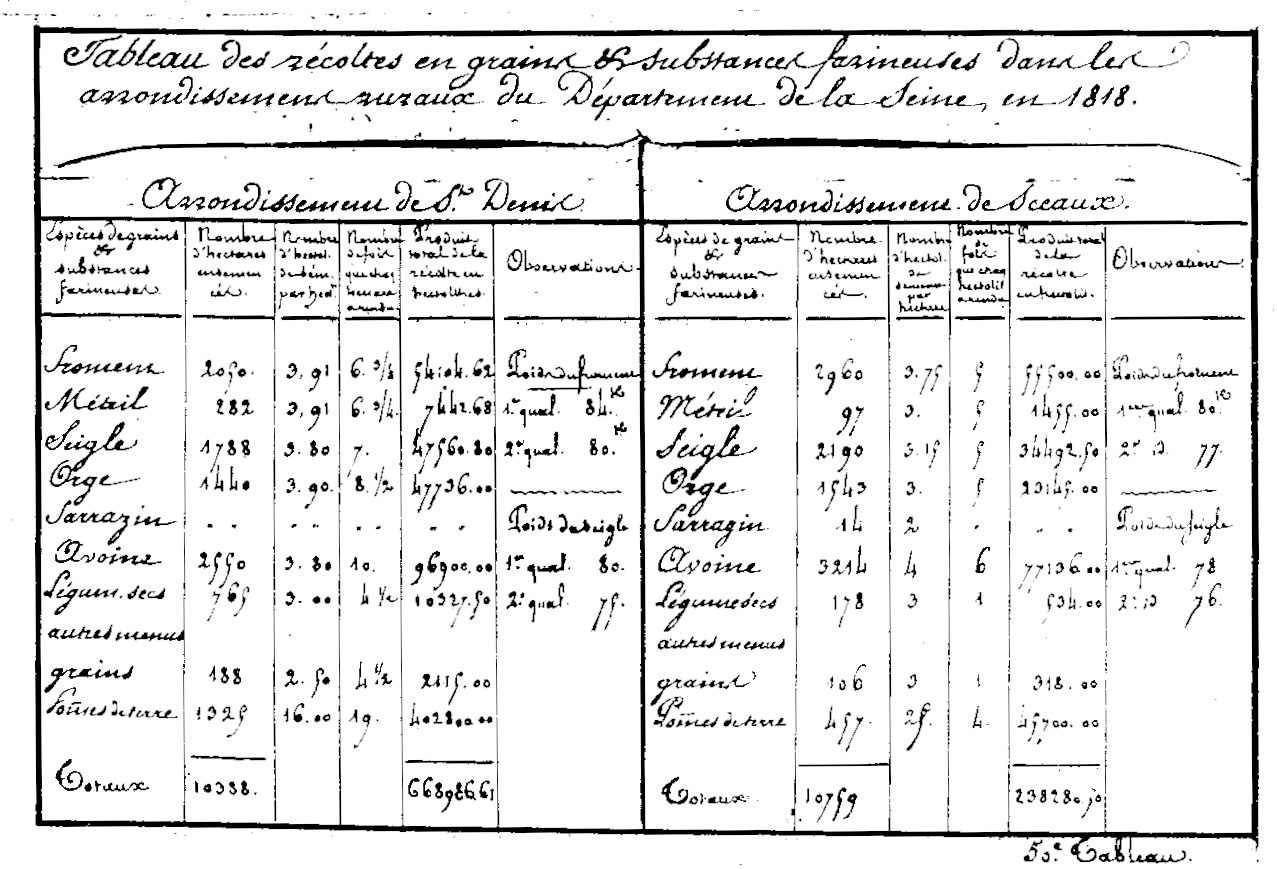 Tableau des récoltes en grains & substances farineuses dans les
arrondissemens ruraux du Département de la Seine, en 1818.
Arrondissement de St. Denis.
Espèces de grains & substances farineuses.
Nombre d'hectares ensemencés.
Nombre d'hectol. de sem. par hect.
Nombre de fois que chaq. hectare a rendu.
Produit total de la récolte en hectolitres.
Observations.
Froment 2050. 3,91 6.3/4 54104.62 Poids du froment
Méteil 282 3,91 6.3/4 7442.68 1re qual. 84.K
Seigle 1788 3.80 7. 47560.80 2e qual. 80.K
Orge 1440 3.90. 8.1/2 47736.00
Sarrazin " " " " " " " " Poids du seigle
Avoine 2550 3.80 10. 96900.00 1re qual. 80.
Légum. secs 765 3.00 4 1/2 10327.50 2e qual. 75.
autres menus
grains 188 2.50 4 1/2 2115.00
Pommes de terre 1325 16.00 19. 402800.00
Totaux 10388. 668986.61
Arrondissement de Sceaux.
Espèces de grains & substances farineuses.
Nombre d'hectares ensemencés.
Nombre d'hectol. de semence par hectare
Nombre de fois que chaq. hectolit. a rendu.
Produit total de la récolte en hectolit.
Observations.
Froment 2960 3.75 5 55500.00 Poids du froment
Méteil 97 3. 5 1455.00 1ere qual. 80.K
Seigle 2190 3.15 5 34492.50 2e id. 77.
Orge 1543 3. 5 23145.00
Sarrazin 14 2 " " " Poids du seigle
Avoine 3214 4 6 77136.00 1re qual. 78
Légumes secs 178 3 1 534.00 2e id 76.
autres menus
grains 106 3 1 318.00
Pommes de terre 457. 25. 4. 45700.00
Totaux. 10759 238280.50
50e. Tableau.